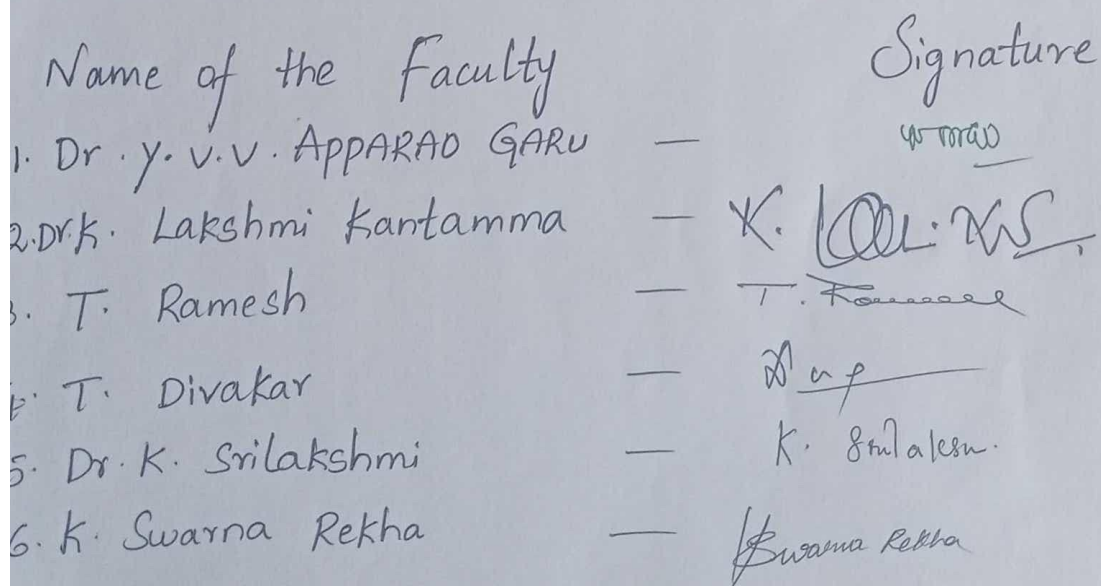 Name of the Faculty Signature
1. Dr. Y. V. V. APPARAO GARU —
2. Dr. K. Lakshmi Kantamma — K.
3. T. Ramesh — T.
T. Divakar —
5. Dr. K. Srilakshmi — K.
6. K. Swarna Rekha — Swarna Rekha